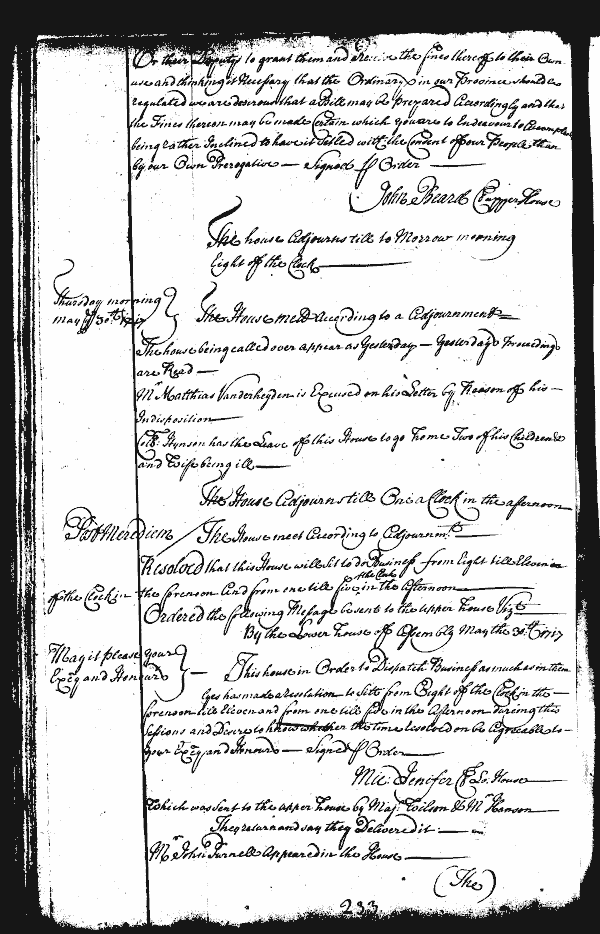 Or their Deputys to grant them and receive the fines thereof to their Own
use and thinking it Necessary that the Ordinarys in our Province should be
regulated we are desirous that a Bill may be prepared Accordingly and that
the Fines thereon may be made Certain which you are to Endeavour to Accomplish
being rather Inclined to have it Setled with the Consent of our People than
by our Own Prerogative — Signed p Order
John Beard Cl upper House
The house Adjourns till to Morrow morning
Eight off the Clock
Thursday morning
may 30th 1717
The House mett According to Adjournment
The house being called over appear as Yesterday — Yesterdays Proceedings
are Read —
Mr Matthias Vanderheyden is Excused on his Letter by Reason off his
Indisposition
Coll: Hynson has the Leave of this House to go home Two of his Children
and Wife being ill
The House Adjourns till One a Clock in the afternoon
Post Meridiem / The House meet According to Adjournmt
Resolved that this House will Sit to do Business from Eight till Eleven
off the Clock in the forenoon And from one till five of the Clock in the Afternoon
Ordered the following Mesage be sent to the upper house Vizt
By the Lower house off Assembly May the 30th 1717
May it please your
Excy and Honours
This house in Order to Dispatch Business as much as in them
lyes has made a resolution to Sitt from Eight off the Clock in the
forenoon till Eleven and from one till five in the Afternoon during this
Sessions and Desire to know whether the time resolved on be Agreable to
your Excy and Honours — Signed p Order
Mic: Jenifer Cl Lo. House
Which was sent to the upper house by Maj: Wilson & Mr Hanson
They return and say they Delivered it
Mr John Purnell Appeared in the House
(The)
233